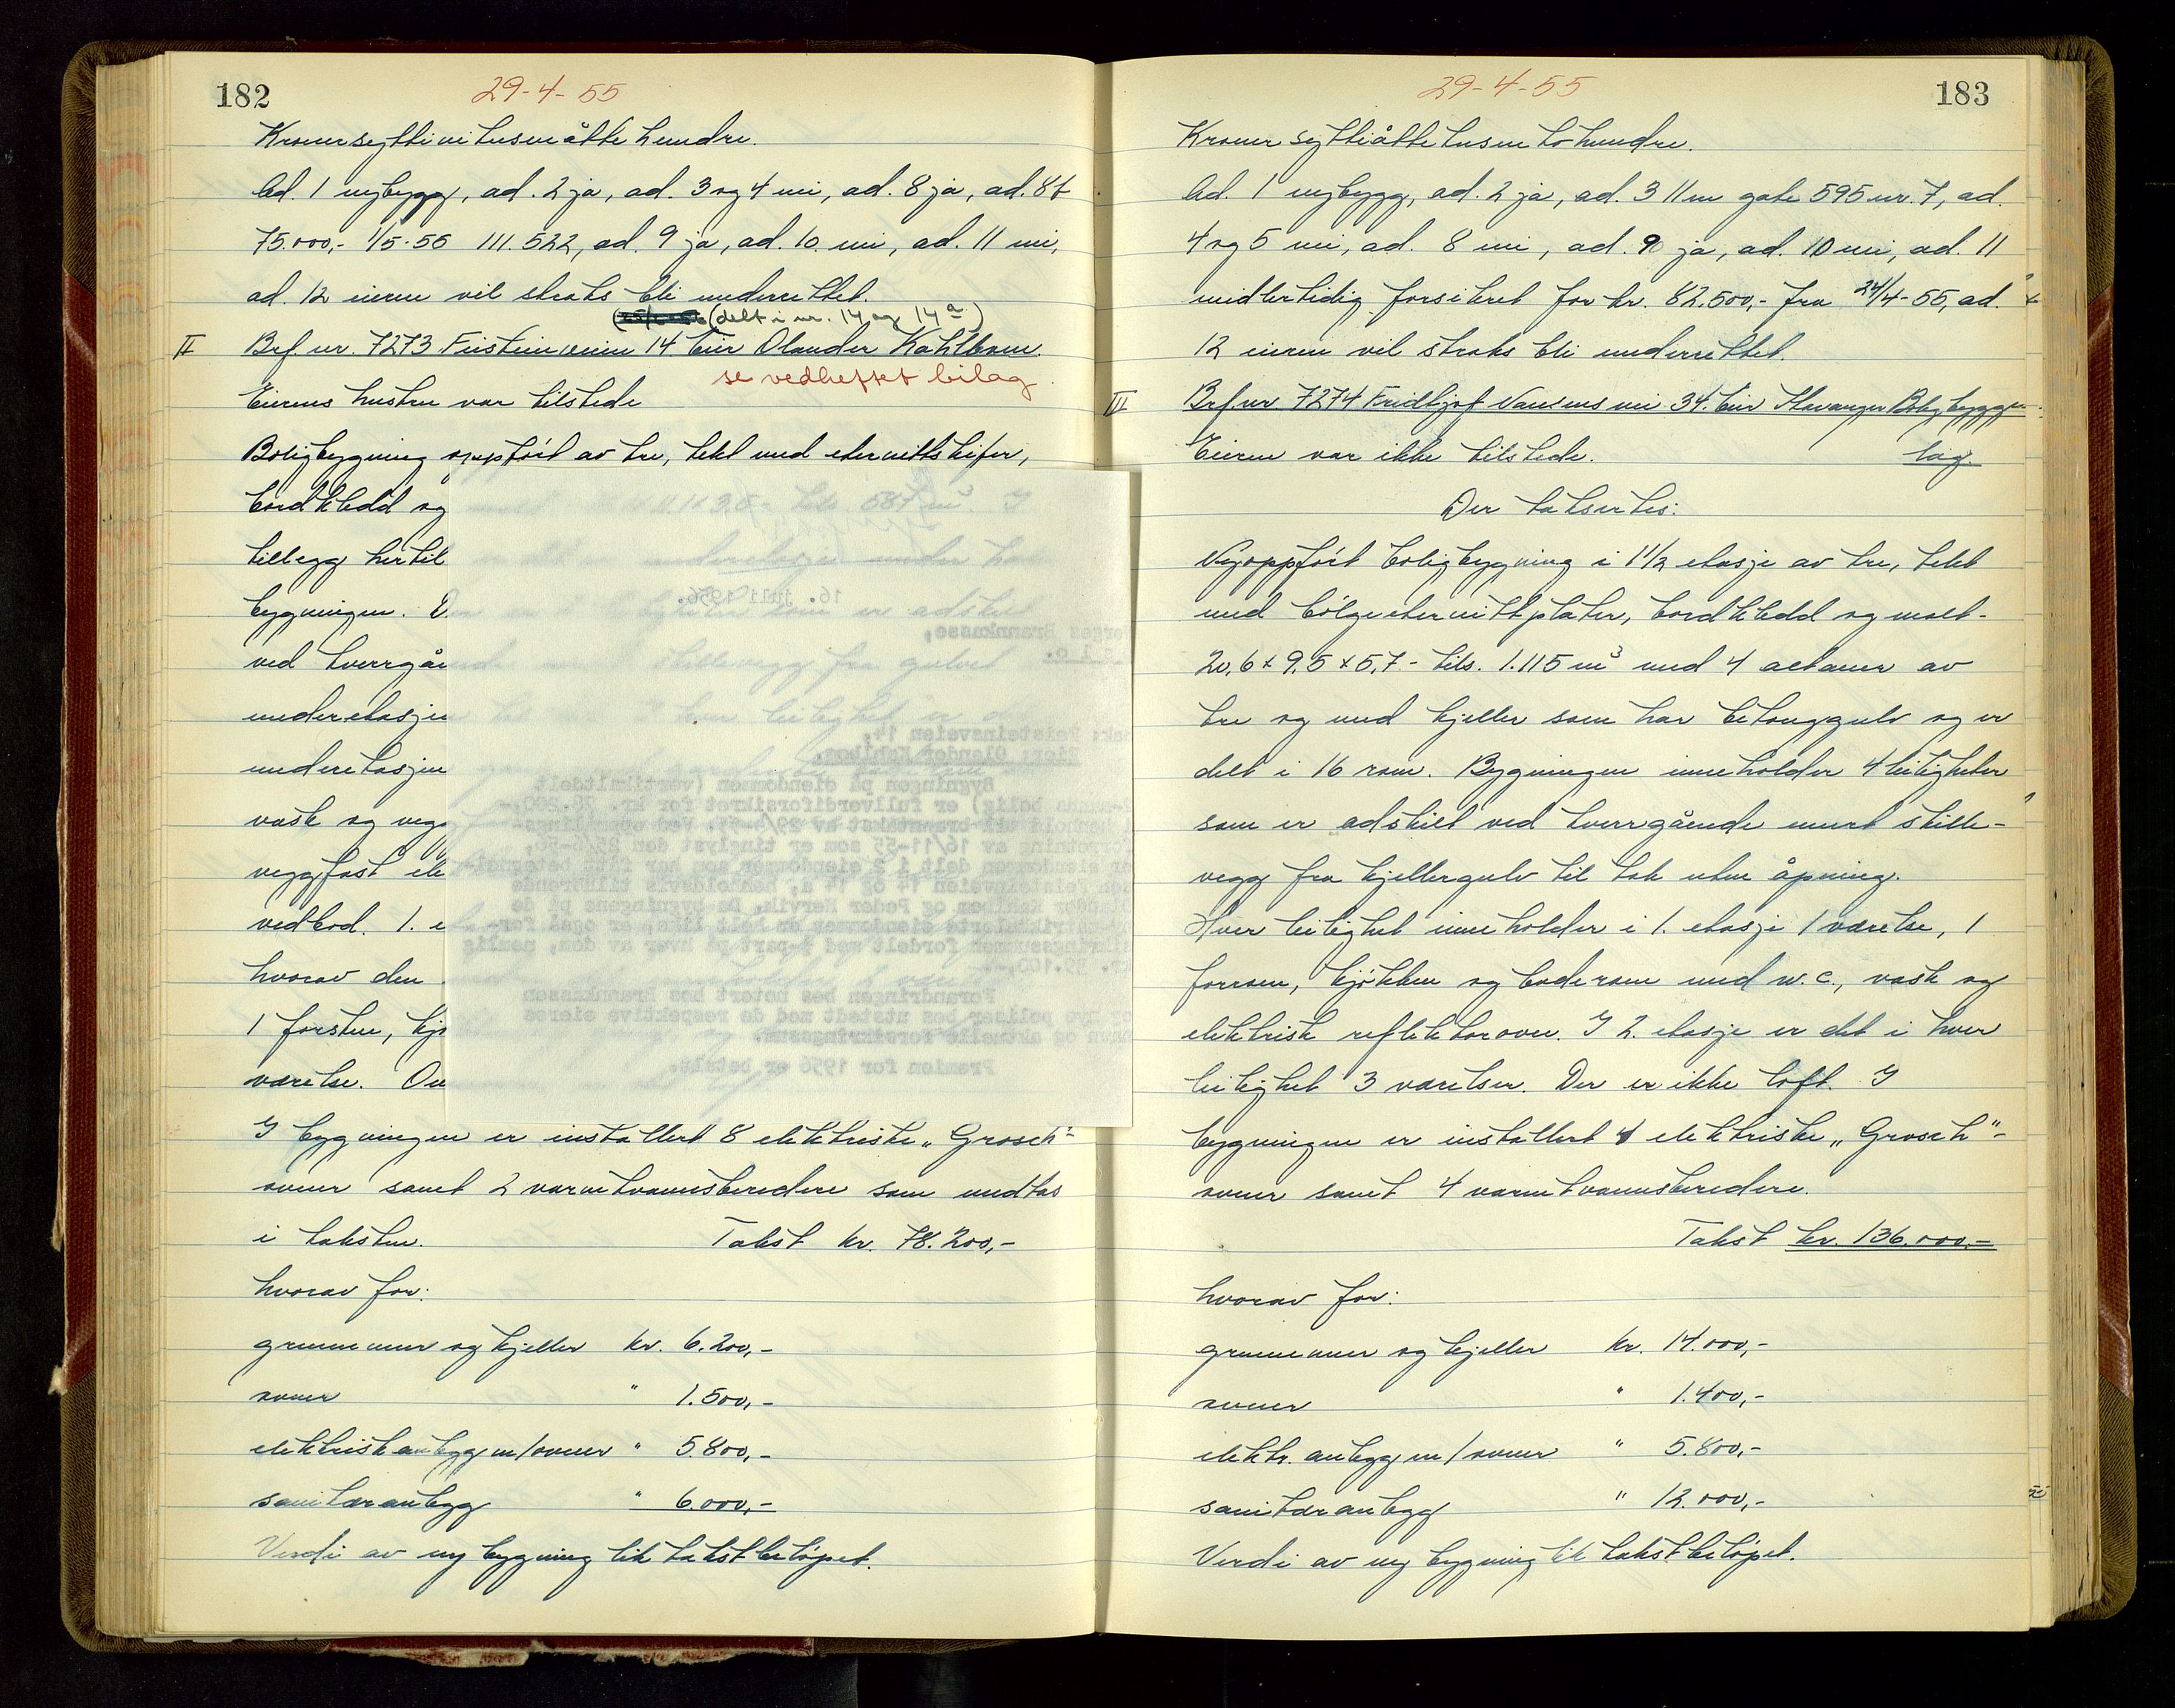 182
29-4-55
Kroner syttinitusenåttehundre.
Ad. 1 nybygg, ad. 2 ja, ad. 3 og 4 nei, ad. 8 ja, ad. 8f
75.000,- 1/5-55 111.522, ad. 9 ja, ad. 10 nei, ad. 11 nei,
ad. 12 eieren vil straks bli underrettet.
(delt i nr. 14 og 14 a)
II Brf. nr. 7273 Feisteinveien 14 Eier Olander Kahlbom.
se vedheftet bilag
Eierens hustru var tilstede
Boligbygning oppført av tre, tekt med eternittskifer,
bordkledd og
tillegg hertil
bygningen. D
ved tverrgåe
underetasjen
underetasjen
vask og vegg
veggfast ele
vedbod. 1. e
hvorav den
1 forstue, kjø
værelse. Ov
I bygningen er installert 8 elektriske „Grosch"-
ovner samt 2 varmtvannsberedere som medtas
i taksten. Takst kr. 78.200,-
hvorav for:
grunnmur og kjeller kr. 6.200,-
ovner " 1.500,-
elektrisk anlegg m/ovner " 5.800,-
sanitæranlegg " 6.000,-
Verdi av ny bygning lik takstbeløpet.
16. juli 1956.
Norges Brannkasse,
Feisteinsveien 14,
Eier: Olander Kahlbom.
Bygningen på eiendommen (vertikaltdelt
bolig) er fullverdiforsikret for kr. 78.200,-
i henhold til branntakst av 29/4-55. Ved oppmålings-
forretning av 16/11-55 som er tinglyst den 25/6-56,
er eiendommen delt i 2 eiendommer som har fått betegnel-
sen Feisteinveien 14 og 14 a, henholdsvis tilhørende
Olander Kahlbom og Peder Hervik. Da bygningens på de
matrikulerte eiendommer er helt like, er også for-
sikringssummen fordelt med ½-part på hver av dem, nemlig
kr. 39.100,-.
Forandringen bes notert hos Brannkassen
nye poliser bes utstedt med de respektive eieres
navn og aktuelle forsikringssum.
Premien for 1956 er betalt.
183
29-4-55
Kroner syttiåttetusentohundre.
Ad. 1 nybygg, ad. 2 ja, ad. 3 11 m gate 595 nr. 7, ad.
4 og 5 nei, ad. 8 nei, ad. 9 ja, ad. 10 nei, ad. 11
midlertidig forsikret for kr. 82.500,- fra 24/4-55, ad.
12 eieren vil straks bli underrettet.
III Brf. nr. 7274 Fridtjof Nansens vei 34. Eier Stavanger Boligbygge-
lag.
Eieren var ikke tilstede.
Der takseres:
Nyoppført boligbygning i 1 1/2 etasje av tre, tekt
med bølgeeternittplater, bordkledd og malt-
20,6 x 9,5 x 5,7 - tils. 1.115 m³ med 4 altaner av
tre og med kjeller som har betonggulv og er
delt i 16 rom. Bygningen inneholder 4 leiligheter
som er adskilt ved tverrgående murt skille-
vegg fra kjellergulv til tak uten åpning.
Hver leilighet inneholder i 1. etasje 1 værelse, 1
forrom, kjøkken og baderom med w.c., vask og
elektrisk reflektorovn. I 2. etasje er det i hver
leilighet 3 værelser. Der er ikke loft. I
bygningen er installert 4 elektriske „Grosch"-
ovner samt 4 varmtvannsberedere.
Takst kr. 136.000,-
hvorav for:
grunnmur og kjeller kr. 14.000,-
ovner " 1.400,-
elektr. anlegg m/ovner " 5.800,-
sanitæranlegg " 12.000,-
Verdi av ny bygning lik takstbeløpet.